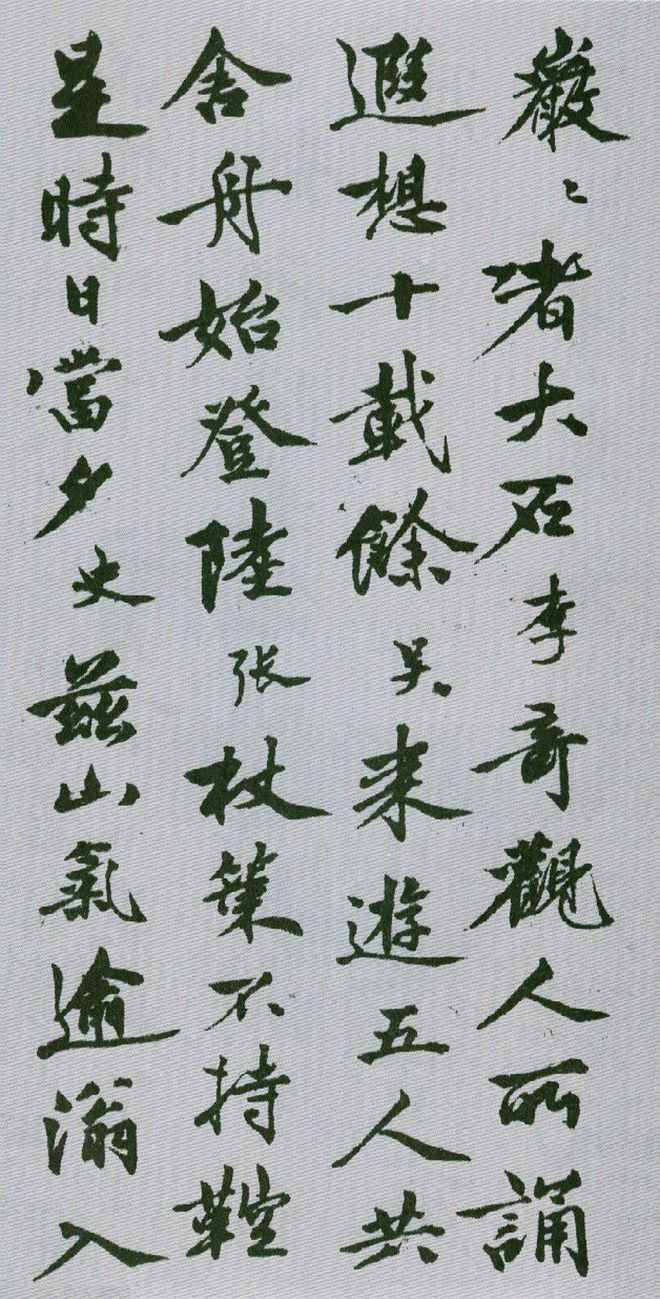 巖〻渚大石李奇觀人所誦
遐想十載餘吴来遊五人共
舍舟始登陸張杖策不持鞚
是時日當夕史茲山氣逾滃入